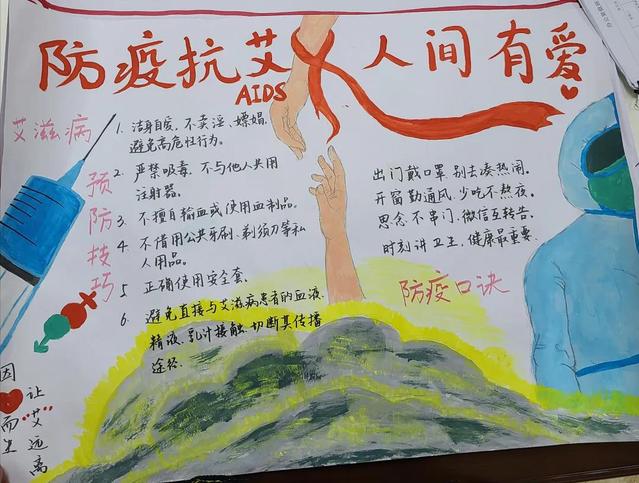 防疫抗艾 人间有爱
AIDS
艾滋病
预防技巧
1. 洁身自爱，不卖淫、嫖娼，
避免高危性行为。
2. 严禁吸毒，不与他人共用
注射器。
3. 不擅自输血或使用血制品。
4. 不借用公共牙刷、剃须刀等私
人用品。
5 正确使用安全套。
6. 避免直接与艾滋病患者的血液、
精液、乳汁接触，切断其传播
途径.
出门戴口罩，别去凑热闹。
开窗勤通风，少吃不熬夜。
思念不串门，微信互转告。
时刻讲卫生，健康最重要.
防疫口诀
因
而生
让
"艾"
远离